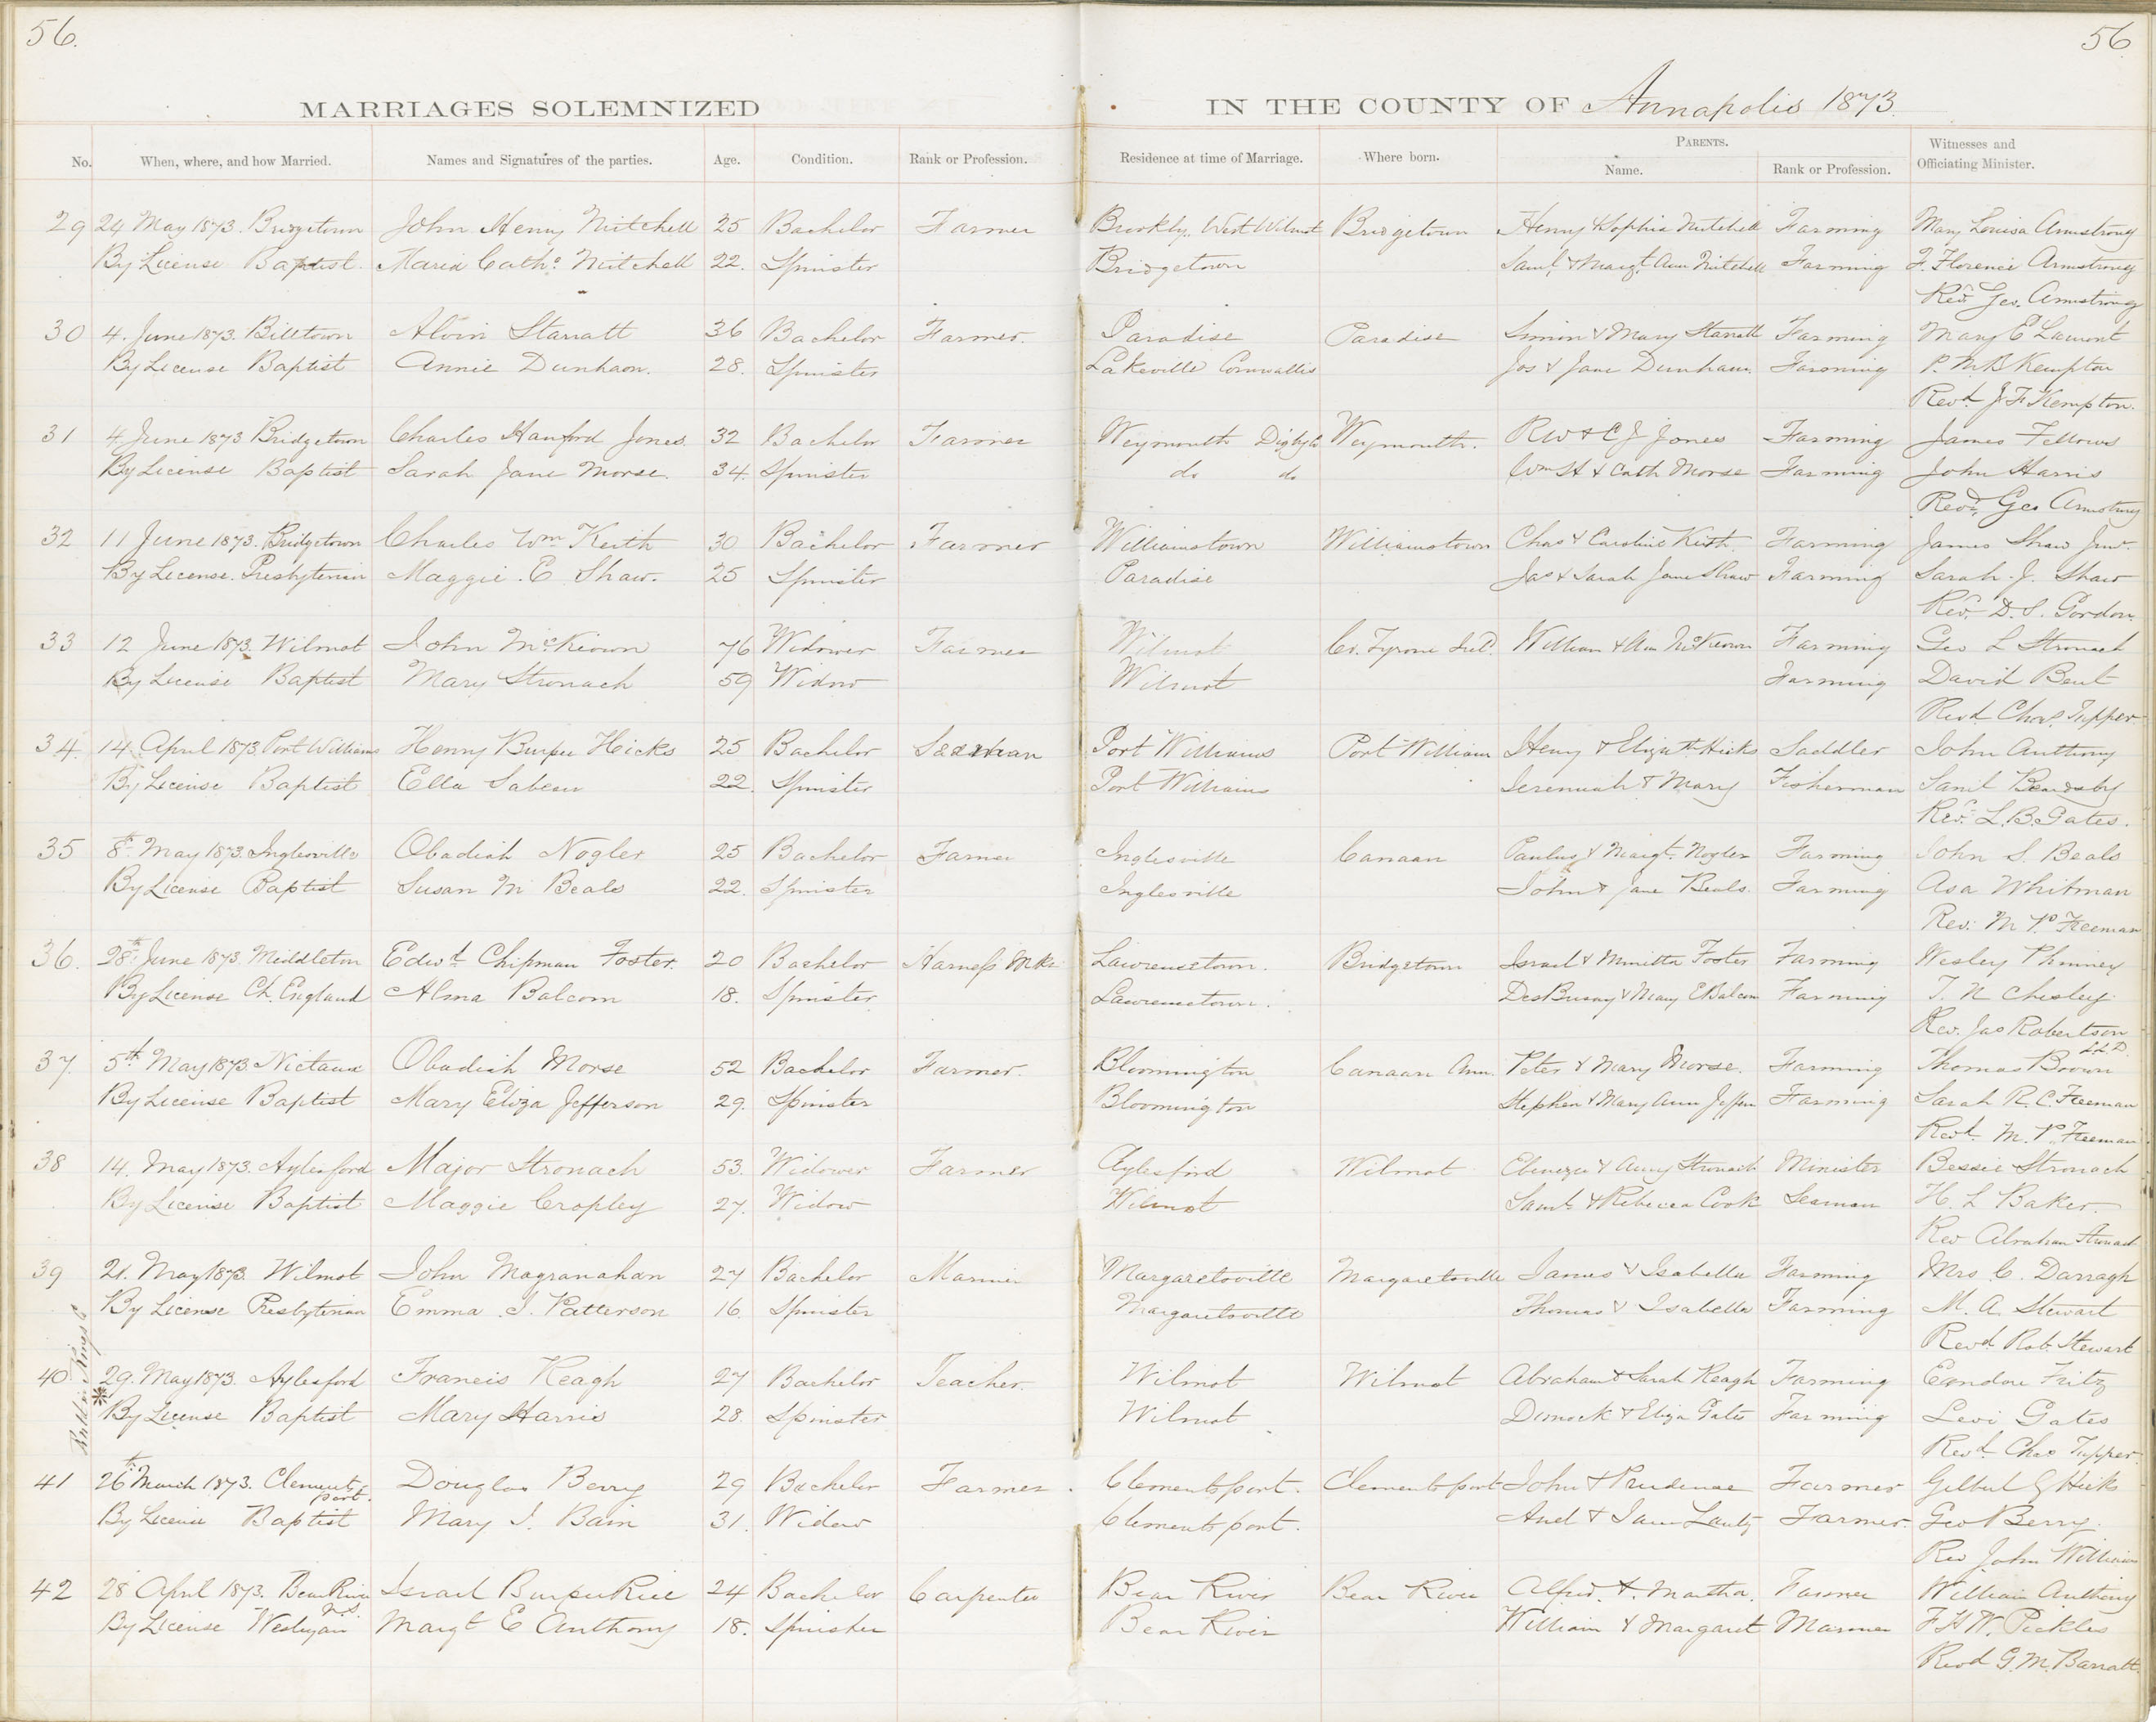 56. 56
MARRIAGES SOLEMNIZED IN THE COUNTY OF Annapolis 1873.
No. When, where, and how Married. Names and Signatures of the parties. Age. Condition. Rank or Profession. Residence at time of Marriage. Where born. PARENTS. Name. Rank or Profession. Witnesses and Officiating Minister.
29 24 May 1873. Bridgetown John Henry Mitchell 25 Bachelor Farmer West Wilmot Bridgetown Henry & Sophia Mitchell Farming Mary Louisa Armstrong
By License Baptist. Maria Cath. Mitchell 22. Spinster Bridgetown Saml. & Margt. Ann Mitchell Farming F. Florence Armstrong
Revd. Geo. Armstrong
30 4. June 1873. Billtown Alvin Starratt 36 Bachelor Farmer. Paradise Paradise Simon & Mary Starratt Farming Mary E Lamont
By License Baptist Annie Dunham. 28. Spinster Lakeville Cornwallis Jos & Jane Dunham. Farming P. M. B Kempton
Revd. J F Kempton.
31 4 June 1873 Bridgetown Charles Hanford Jones. 32 Bachelor Farmer Weymouth Digby Co Weymouth. R W & C J Jones Farming James Fellows
By License Baptist Sarah Jane Morse. 34. Spinster do do Wm H & Cath Morse Farming John Harris
Revd. Geo Armstrong
32 11 June 1873. Bridgetown Charles Wm Keith 30 Bachelor Farmer Williamstown Williamstown Chas & Caroline Keith. Farming James Shaw Junr.
By License. Presbyterian Maggie. E Shaw. 25 Spinster Paradise Jas & Sarah Jane Shaw Farming Sarah. J. Shaw
Revd. D. S. Gordon.
33 12 June 1873. Wilmot John McKeown 76 Widower Farmer Wilmot Co. Tyrone Irld. William & Ann McKeown Farming Geo L Stronach
By License Baptist Mary Stronach 59 Widow Wilmot Farming David Bent
Revd Chas. Tupper
34. 14. April 1873 Port Williams Henry Burpee Hicks 25 Bachelor Seaman Port Williams Port William Henry & Elizath. Hicks Saddler John Anthony
By License Baptist Ella Sabean 22. Spinster Port Williams Jeremiah & Mary Fisherman Saml Beardsley
Revd. L. B. Gates.
35 8th. May 1873. Inglesville Obadiah Nogler 25 Bachelor Farmer Inglesville Canaan Paulus & Margt. Nogler Farming John S. Beals
By License Baptist Susan M Beals 22. Spinster Inglesville John & Jane Beals. Farming Asa Whitman
Rev. M. P. Freeman
36. 28th. June 1873. Middleton Edwd. Chipman Foster. 20 Bachelor Harness Mkr. Lawrencetown. Bridgetown Israel & Minetta Foster Farming Wesley Phinney
By License Ch. England Alma Balcom 18. Spinster. Lawrencetown. DesBrisay & Mary E Balcom Farming T. N Chesley
Rev. Jas Robertson
L.L.D.
37. 5th May 1873. Nictaux Obadiah Morse 52 Bachelor Farmer. Bloomington Canaan Ann. Peter & Mary Morse. Farming Thomas Brown
By License Baptist Mary Eliza Jefferson 29. Spinster Bloomington Stephen & Mary Ann Jeffern Farming Sarah R. C. Freeman
Revd. M. P. Freeman
38 14. May 1873. Aylesford Major Stronach 53. Widower Farmer Aylesford Wilmot Ebenezer & Amy Stronach Minister Bessie Stronach
By License Baptist Maggie Cropley 27. Widow Wilmot Saml. & Rebecca Cook Seaman H. L Baker.
Rev Abraham Stronach
39 21. May 1873. Wilmot John Magranahan 27 Bachelor Mariner Margaretsville Margaretsville James & Isabella Farming Mrs C. Darragh
By License Presbyterian Emma J. Patterson 16. Spinster Margaretsville Thomas & Isabella Farming M. A. Stewart
Revd Rob. Stewart
40 * 29. May 1873. Aylesford Francis Reagh 27 Bachelor Teacher. Wilmot Wilmot Abraham & Sarah Reagh Farming Fritz
By License Baptist Mary Harris 28. Spinster Wilmot Dimock & Eliza Gates Farming Levi Gates
Kings Co
Revd. Chas Tupper.
41 26th March 1873. Clements port. Douglas Berry 29 Bachelor Farmer. Clementsport. Clementsport John & Prudence Farmer Gilbert Hicks
By License Baptist Mary J. Bain 31. Widow Clementsport. & Jane Lantz Farmer. Geo Berry.
Rev John Williams
42 28 April 1873. Bear River N.S. Israel Burpee Rice 24 Bachelor Carpenter Bear River Bear River Alfred. & Martha. Farmer William Anthony
By License Wesleyan Margt E Anthony 18. Spinster Bear River William & Margaret Mariner F. H. W. Pickles
Revd G. M. Barratt.